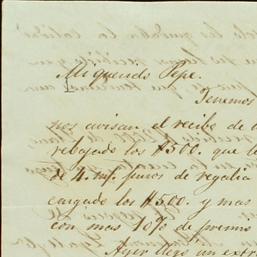 Mi querido Pepe.
Tenemos
avisan el recibo de
rebajado los $500. que
de 4. mf. puros de regalia
cargado los $500. y mas
con mas 10% de premio
Ayer llegó un extra